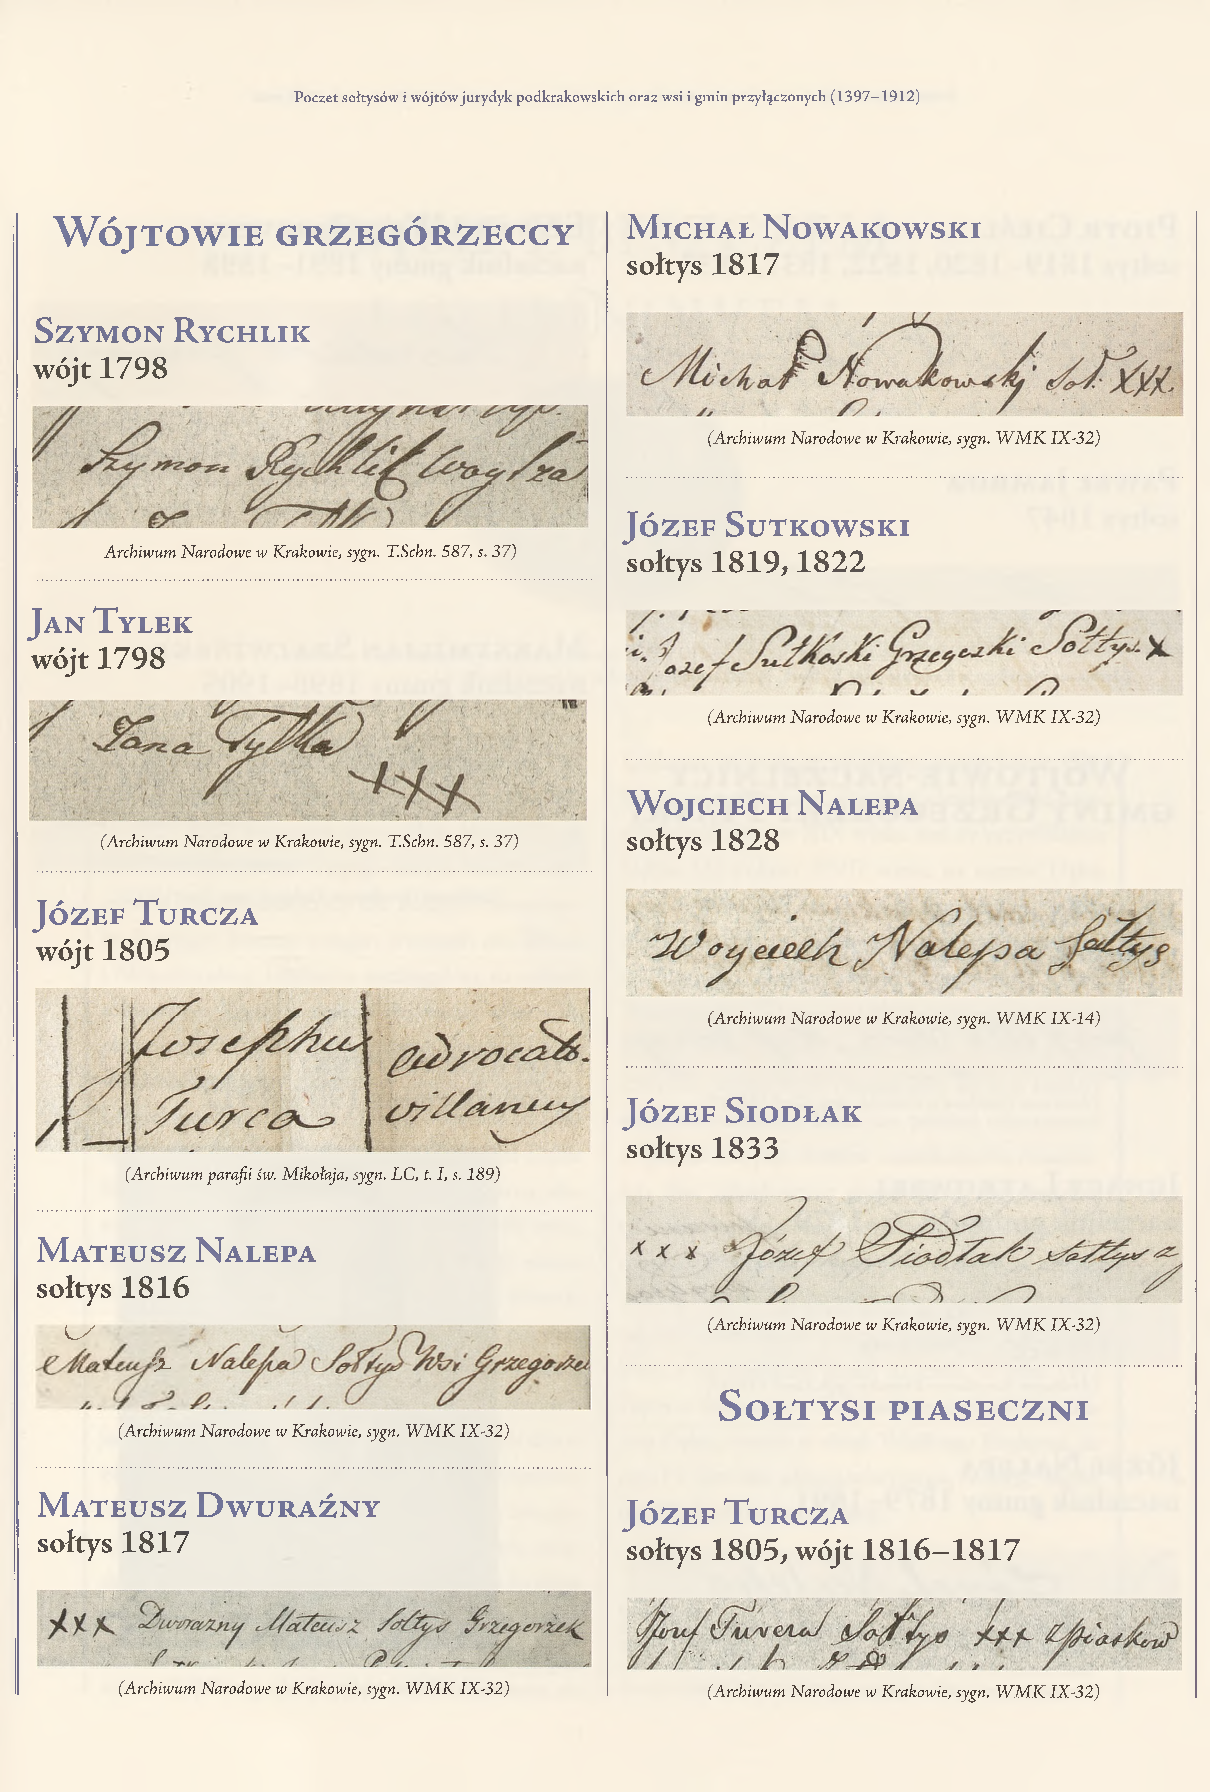 Poczet sołtysów i wójtów jurydyk podkrakowskich oraz wsi i gmin przyłączonych (1397–1912)
Wójtowie grzegórzeccy
Szymon Rychlik
wójt 1798
Szymon Rychlik Woyt za
Archiwum Narodowe w Krakowie, sygn. T.Schn. 587, s. 37)
Jan Tylek
wójt 1798
Jana Tylka
xxx
(Archiwum Narodowe w Krakowie, sygn. T.Schn. 587, s. 37)
Józef Turcza
wójt 1805
Josephus advocatus
Turca villanus
(Archiwum parafii św. Mikołaja, sygn. LC, t. I, s. 189)
Mateusz Nalepa
sołtys 1816
Mateusz Nalepa Sołtys Wsi Grzegorze
(Archiwum Narodowe w Krakowie, sygn. WMK IX-32)
Mateusz Dwuraźny
sołtys 1817
xxx Dworazny Mateusz Sołtys Grzegorzek
(Archiwum Narodowe w Krakowie, sygn. WMK IX-32)
Michał Nowakowski
sołtys 1817
Michał Nowakowski Soł. XXX
(Archiwum Narodowe w Krakowie, sygn. WMK IX-32)
Józef Sutkowski
sołtys 1819, 1822
Jozef Sutkoski Grzegeszki Sołtys x
(Archiwum Narodowe w Krakowie, sygn. WMK IX-32)
Wojciech Nalepa
sołtys 1828
Woyciech Nalepa Sałtys
(Archiwum Narodowe w Krakowie, sygn. WMK IX-14)
Józef Siodłak
sołtys 1833
x x x Józef Siodłak sołtys z
(Archiwum Narodowe w Krakowie, sygn. WMK IX-32)
Sołtysi piaseczni
Józef Turcza
sołtys 1805, wójt 1816–1817
Jozef Turcza Sołtys xxx z piaskow
(Archiwum Narodowe w Krakowie, sygn. WMK IX-32)